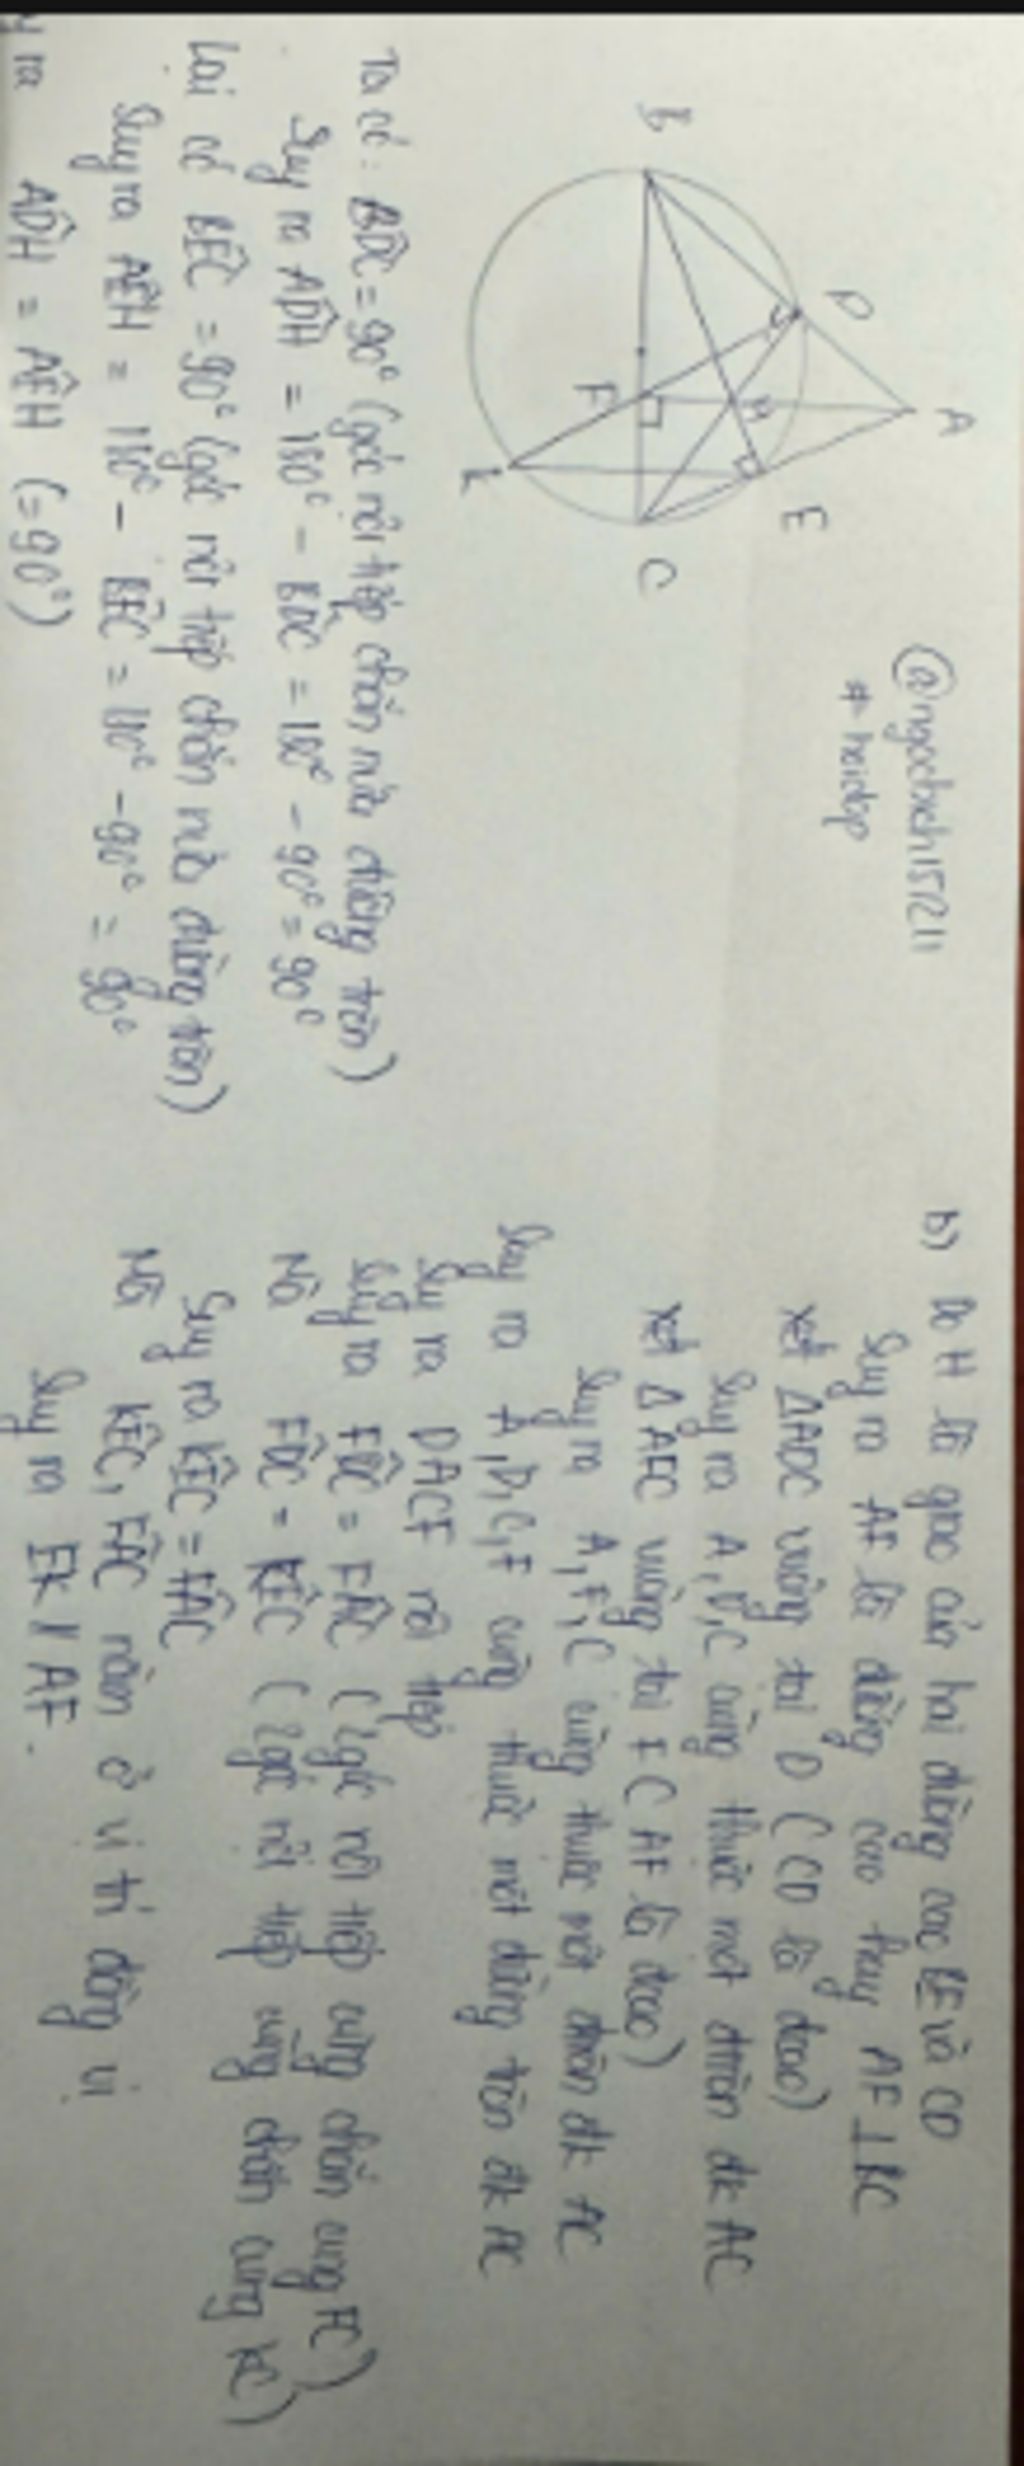 A
D
E
B
H
F
C
K
@ngocbich151211
# hoidap
Ta có: BD̂C = 90° (góc nội tiếp chắn nửa đường tròn)
Suy ra AD̂H = 180° - BD̂C = 180° - 90° = 90°
Lại có BÊC = 90° (góc nội tiếp chắn nửa đường tròn)
Suy ra AÊH = 180° - BÊC = 180° - 90° = 90°
y ra AD̂H = AÊH (= 90°)
b) Do H là giao của hai đường cao BE và CD
Suy ra AF là đường cao hay AF ⊥ BC
Xét ΔADC vuông tại D (CD là đcao)
Suy ra A, D, C cùng thuộc một đtròn đk AC
Xét ΔAFC vuông tại F (AF là đcao)
Suy ra A, F, C cùng thuộc một đtròn đk AC
Suy ra A, D, C, F cùng thuộc một đường tròn đk AC
Suy ra DACF nội tiếp
Suy ra FD̂C = FÂC (2 góc nội tiếp cùng chắn cung FC)
Mà FD̂C = KÊC (2 góc nội tiếp cùng chắn cung KC)
Suy ra KÊC = FÂC
Mà KÊC, FÂC nằm ở vị trí đồng vị
Suy ra EK // AF.